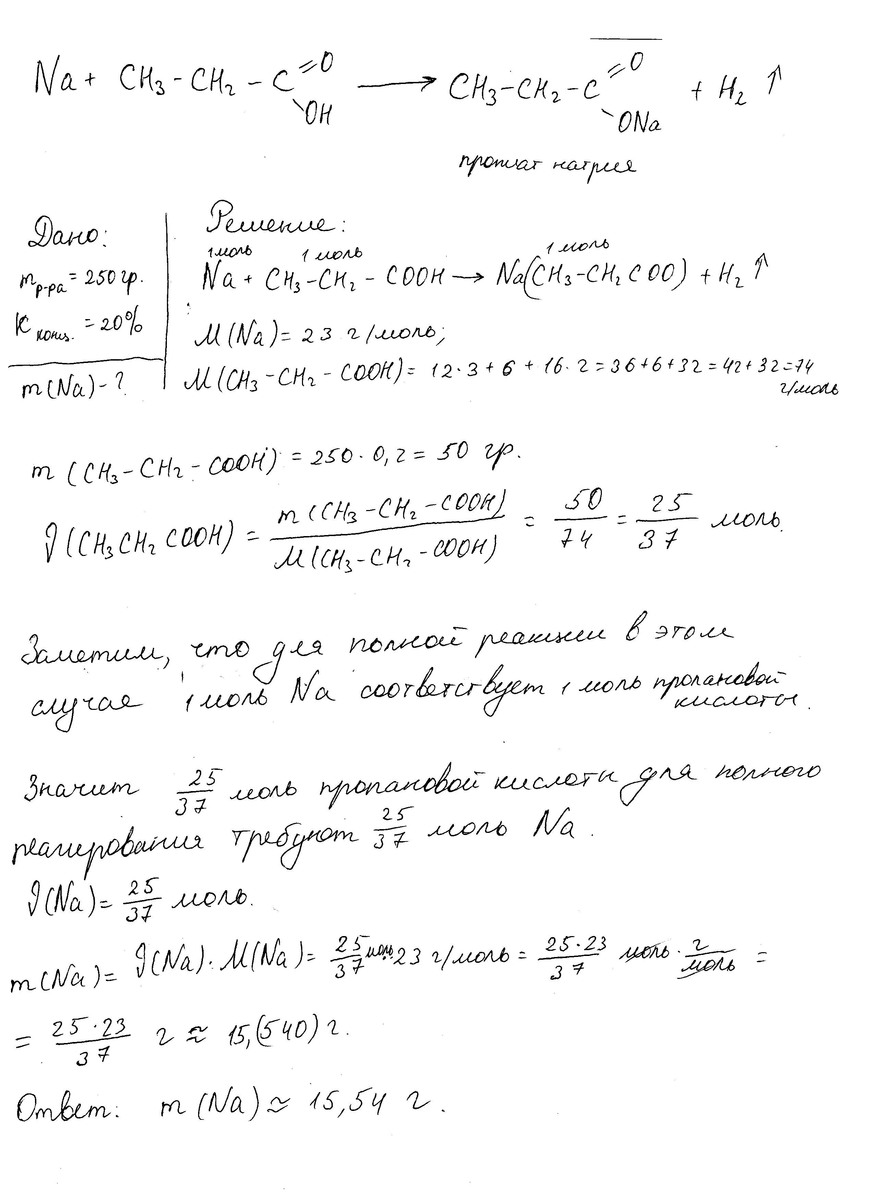 Na + CH₃-CH₂-C=O\OH ⟶ CH₃-CH₂-C=O\ONa + H₂↑
пропиат натрия
Дано:
m р-ра = 250 гр.
K конц. = 20%
m(Na) - ?
Решение:
1 моль 1 моль 1 моль
Na + CH₃-CH₂-COOH ⟶ Na(CH₃-CH₂COO) + H₂↑
M(Na) = 23 г/моль;
M(CH₃-CH₂-COOH) = 12·3 + 6 + 16·2 = 36+6+32 = 42+32 = 74
г/моль
m(CH₃-CH₂-COOH) = 250·0,2 = 50 гр.
ν(CH₃CH₂COOH) = m(CH₃-CH₂-COOH)/M(CH₃-CH₂-COOH) = 50/74 = 25/37 моль.
Заметим, что для полной реакции в этом
случае 1 моль Na соответствует 1 моль пропановой
кислоты.
Значит 25/37 моль пропановой кислоты для полного
реагирования требуют 25/37 моль Na.
ν(Na) = 25/37 моль.
m(Na) = ν(Na)·M(Na) = 25/37 моль·23 г/моль = 25·23/37 моль·г/моль =
= 25·23/37 г ≈ 15,(540) г.
Ответ: m(Na) ≈ 15,54 г.